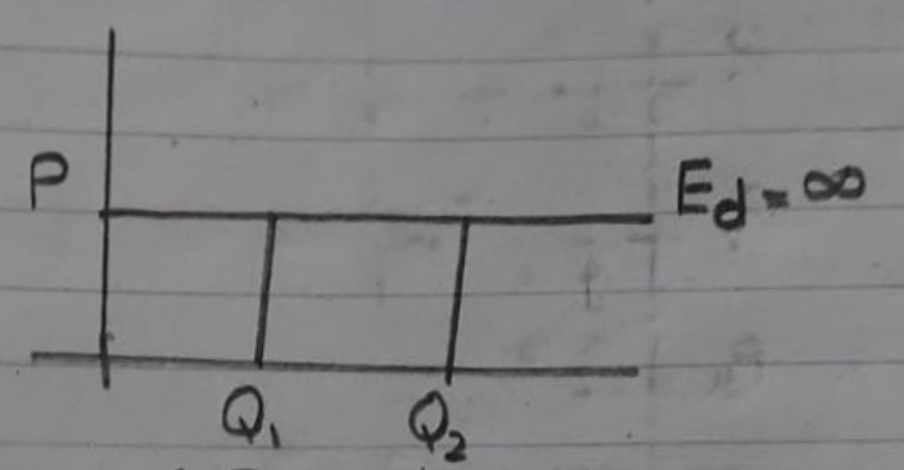 P
Ed = ∞
Q1
Q2